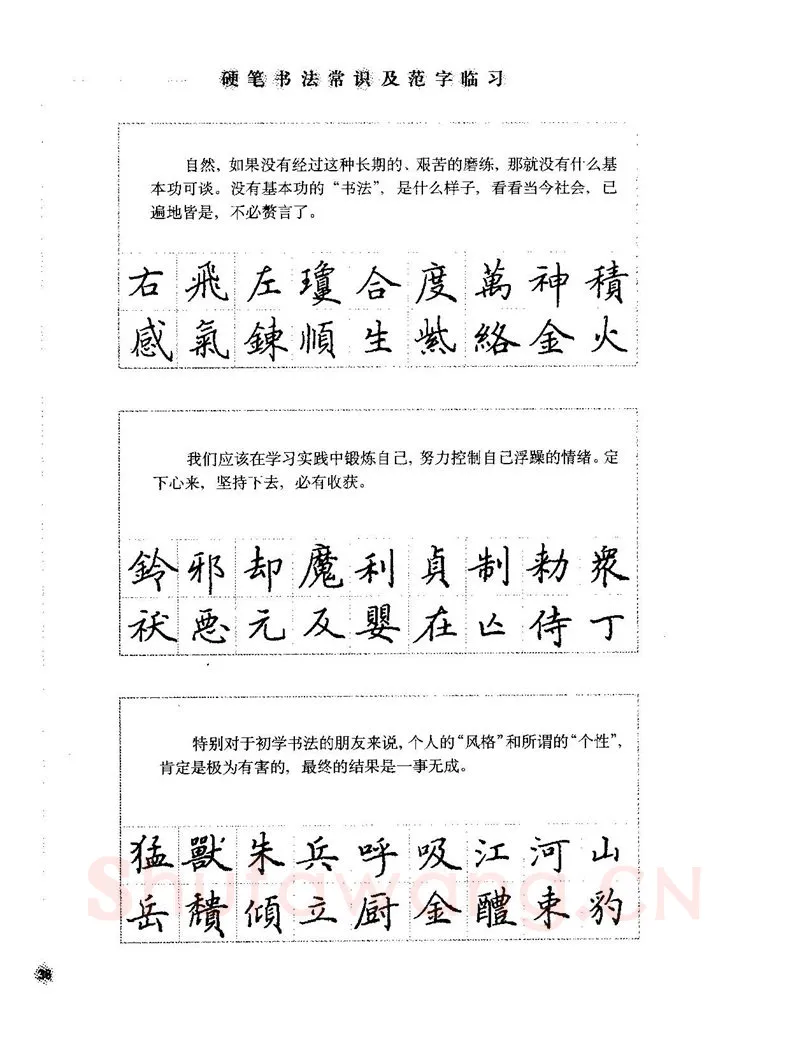 硬笔书法常识及范字临习
自然，如果没有经过这种长期的、艰苦的磨练，那就没有什么基
本功可谈。没有基本功的“书法”，是什么样子，看看当今社会，已
遍地皆是，不必赘言了。
右飛左瓊合度萬神積
感氣鍊順生紫絡金火
我们应该在学习实践中锻炼自己，努力控制自己浮躁的情绪。定
下心来，坚持下去，必有收获。
鈴邪却魔利貞制勑衆
袄恶元反嬰在亾侍丁
特别对于初学书法的朋友来说，个人的“风格”和所谓的“个性”，
肯定是极为有害的，最终的结果是一事无成。
猛獸朱兵呼吸江河山
岳積傾立厨金醴東豹
Shufawang.CN
38